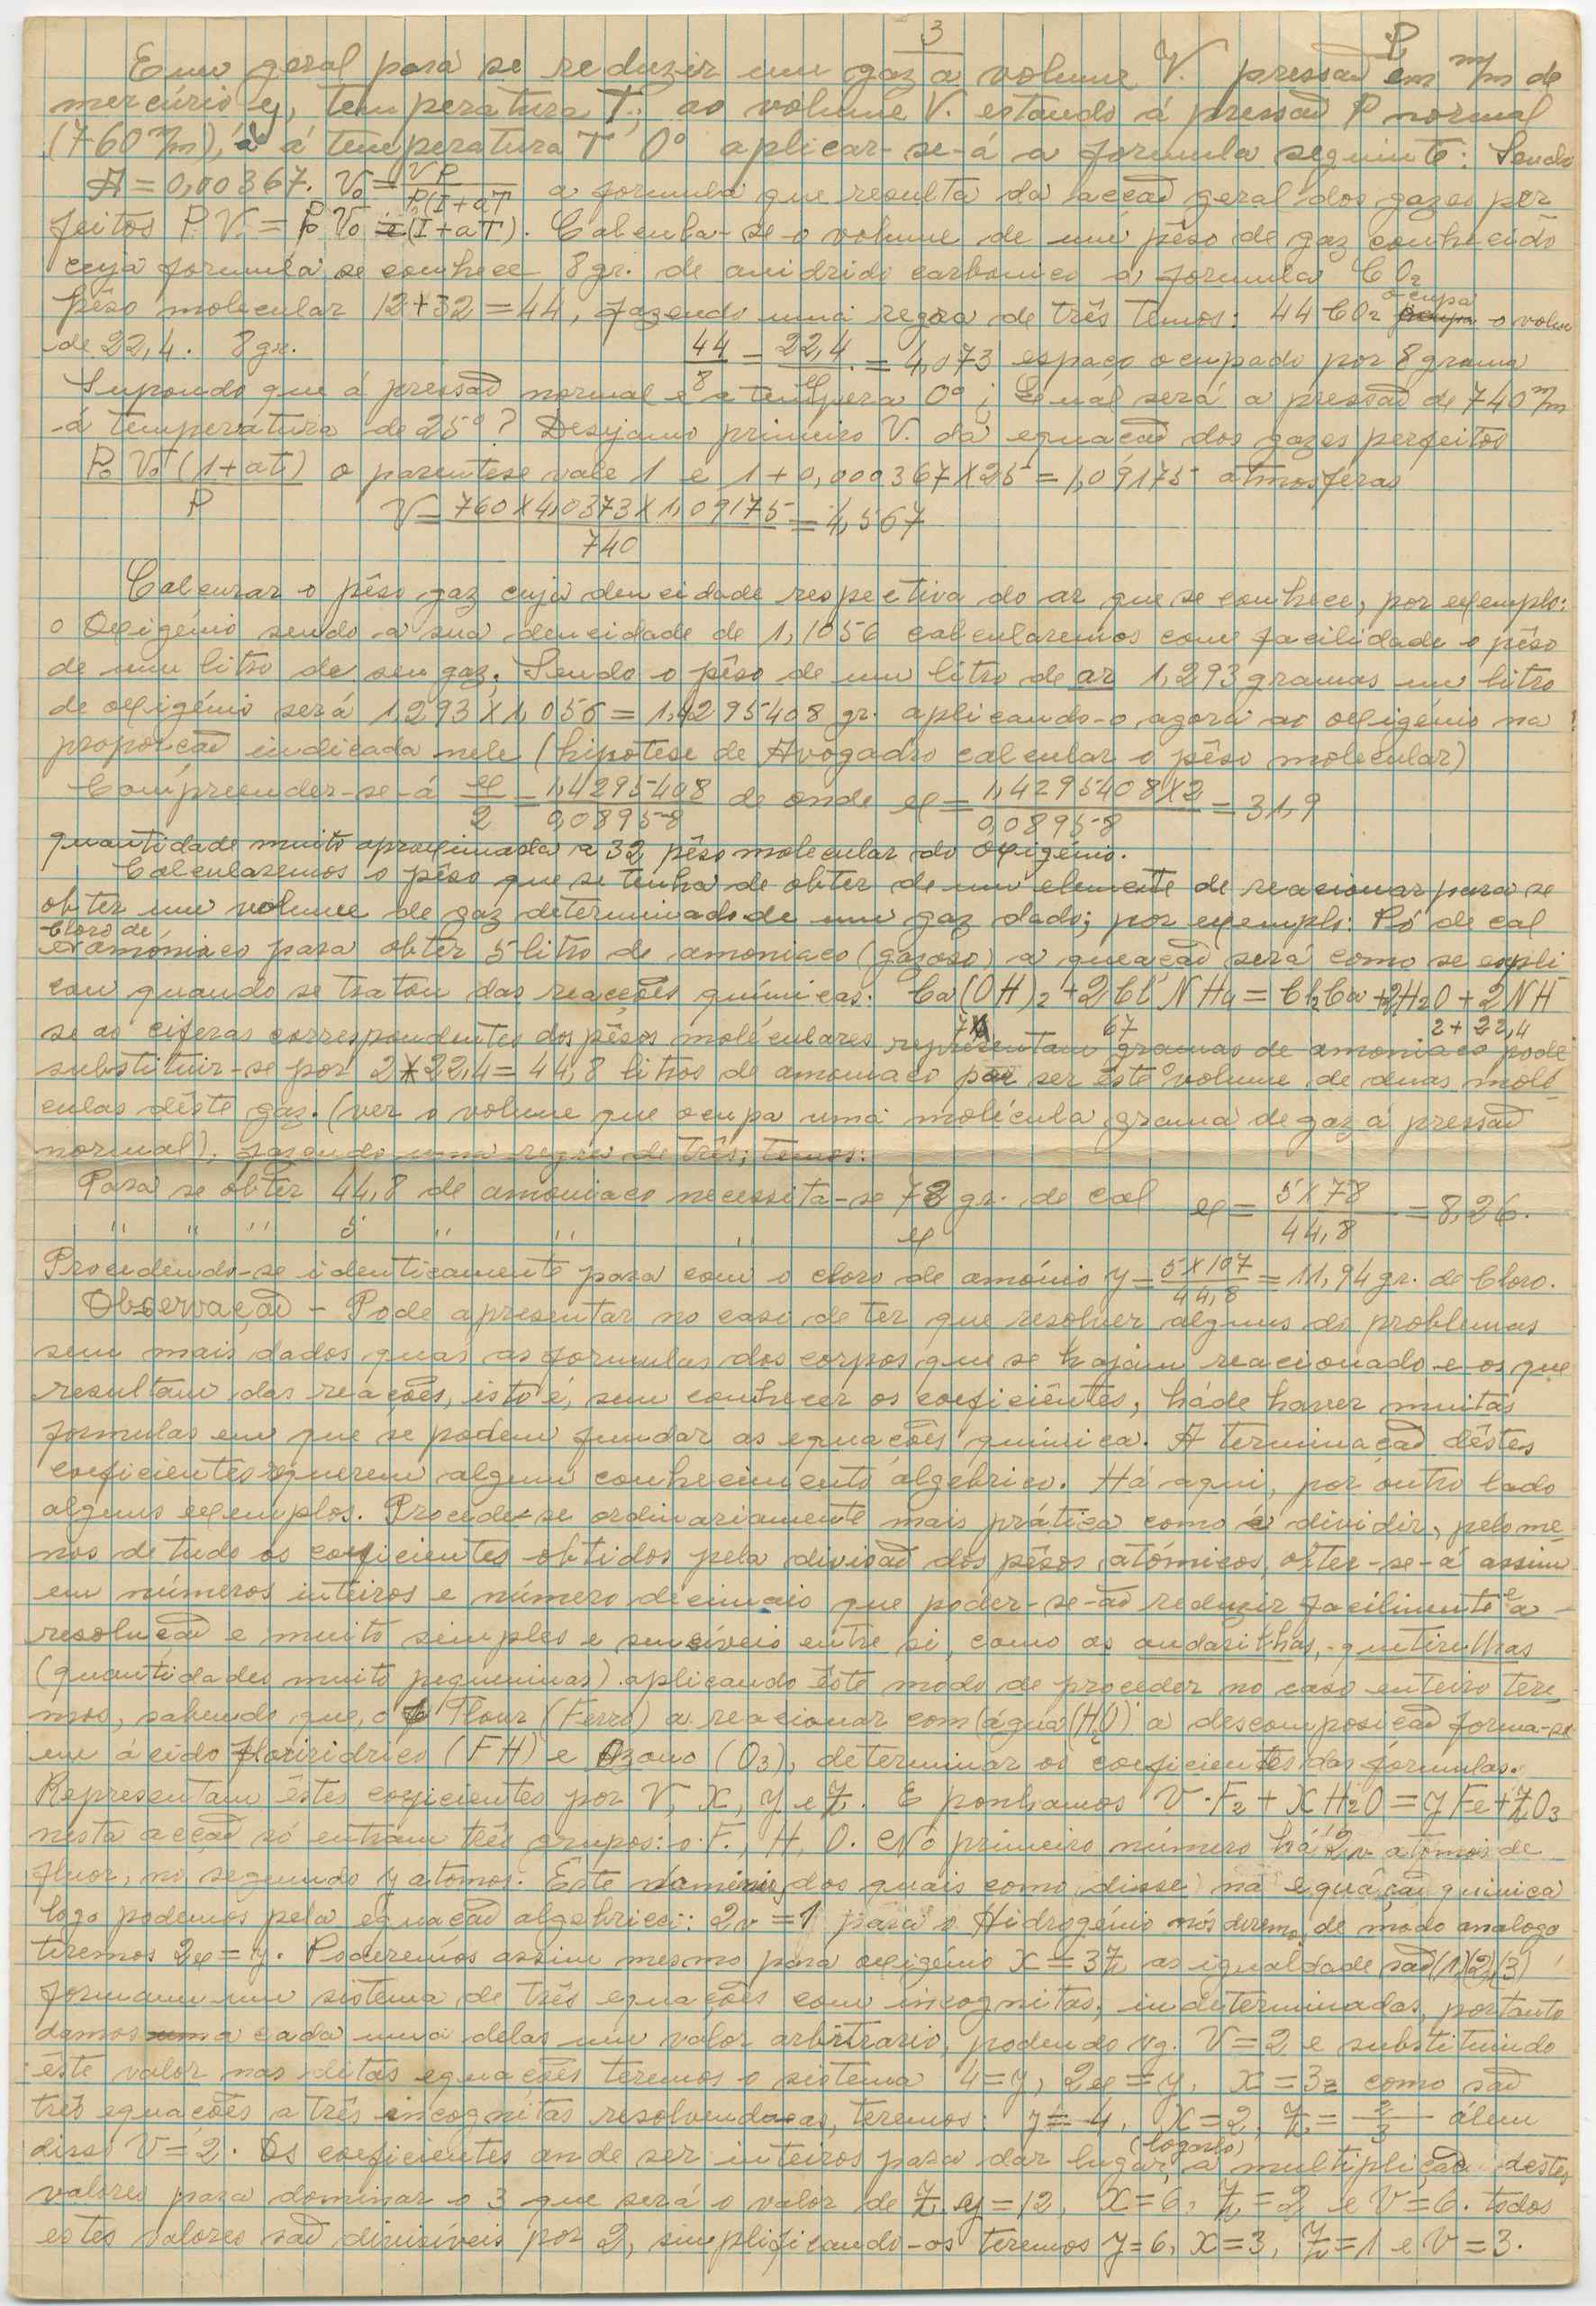 3
Em geral pará se reduzir um gaz a volume V. pressaõ P, em m/m de
mercúrio y, temperatura T; ao volume V. estando á pressaõ P normal
(760 m/m), á á temperatura T 0° aplicar-se-á a formula seguinte: Sendo
A = 0,00367. V₀ = VP / P(I+aT a formula que resulta da acçaõ geral dos gazes per
feitos P. V. = P₀ V₀ (I+aT). Calcula-se o volume de um pêso de gaz conhecido
cuja formula se conhece 8gr. de anidrido carbonico a, formula CO₂
pêso molecular 12+32=44, fazendo uma regra de três temos: 44 CO₂ ocupa o volu
de 22,4. 8gr. 44/8 = 22,4/x. = 4,073 espaço ocupado por 8 grama
Supondo que á pressaõ normal e a tempera 0°; Qual será a pressaõ de 740 m/m
á temperatura de 25°? Desejamo primeiro V. da equaçaõ dos gazes perfeitos
P₀ V₀ (1+at) / P o parentese vale 1 e 1+0,000367X25=1,09175 atmosferas
V = 760X4,0373X1,09175 / 740 = 4,567
Calcurar o pêso gaz cuja dencidade respectiva do ar que se conhece, por exemplo:
o Oxigénio sendo a sua dencidade de 1,1056 calcularemos com facilidade o pêso
de um litro de seu gaz. Sendo o pêso de um litro de ar 1,293 gramas um litro
de oxigénio será 1,293X1,056=1,4295408 gr. aplicando-o agora ao oxigénio na
proporçaõ indicada nele (hipotese de Avogadro calcular o pêso molecular)
Compreender-se-á x/2 = 1,4295408/0,08958 de onde x = 1,4295408X2 / 0,08958 = 31,9
quantidade muito aproximada a 32 pêso molecular do Oxigénio.
Calcularemos o pêso que se tenha de obter de um elemente de reacionar para se
obter um volume de gaz determinado de um gaz dado; por exemplo: Pó de cal
cloro de
amóniaco para obter 5 litro de amoniaco (gazoso) a queaçaõ será como se expli
cou quando se tratou das reacções químicas: Ca(OH)₂+2Cl NH₄=Cl₂Ca+2H₂O+2NH
se as ciferas correspondentes dos pêsos moléculares representam gramas de amoniaco pode
67 2+22,4
substituir-se por 2X22,4=44,8 litros de amoniaco por ser êste o volume de duas molé
culas dêste gaz. (ver o volume que ocupa uma molécula grama de gaz á pressaõ
normal), fazendo uma regra de três; temos:
Para se obter 44,8 de amoniaco necessita-se 78 gr. de cal x = 5X78 / 44,8 = 8,26.
" " " 5 " " " x
Procedendo-se identicamente para com o cloro de amónio y = 5X107 / 44,8 = 11,94 gr. de Cloro.
Observaçaõ - Pode apresentar no caso de ter que resolver alguns do problemas
sem mais dados quas as formulas dos corpos que se hajam reacionado e os que
resultam das reações, isto é, sem conhecer os coeficiêntes, háde haver muitas
formulas em que se podem fundar as equações química. A terminaçaõ dêstes
coeficientes requerem algum conhecimento algebrico. Há aqui, por outro lado
alguns exemplos. Procede-se ordinariamente mais prática como é dividir, pelo me
nos de tudo os coeficientes obtidos pela divisaõ dos pêsos atómicos, obter-se-á assim
em números inteiros e número decimais que poder-se-aõ reduzir facilimente e a
resoluçaõ e muito simples e sensíveis entre si, como as
(quantidades muito pequeninas) aplicando êste modo de proceder no caso enteiro tere
mos, sabendo que, o Flour (Ferro) a reacionar com (água (H₂O) a descomposiçaõ forma-se
em ácido floriridrico (FH) e Ozono (O₃), determinar os coeficientes das fórmulas.
Representam êstes coeficientes por V, X, y e Z. E ponhamos V.F₂+XH₂O=yFe+ZO₃
nesta acçaõ só entram três grupos: o F., H, O. No primeiro número há 2v atomos de
fluor, no segundo y atomos. Êste dos quais como disse na equaçaõ quimica
logo podemos pela equaçaõ algebrica: 2v=1 para o Hidrogénio nós de modo analogo
teremos 2x=y. Poderemos assim mesmo para oxigénio X=3Z as igualdade saõ (1)(2)(3)
formam um sistema de três equações com incognitas, indeterminadas, portanto
damos a cada uma delas um valor arbitrario, podendo vg. V=2 e substituindo
êste valor nas ditas equações teremos o sistema 4=y, 2x=y, X=3z como saõ
três equações a três incognitas resolvendo-as, teremos: y=4, X=2, Z=2/3 álem
disso V=2. Os coeficientes ande ser inteiros para dar lugar (logarlo) a multipliçaõ destes
valores para dominar o 3 que será o valor de Z, y=12, X=6, Z=2 e V=6. todos
estes valores saõ divisíveis por 2, simplificando-os teremos y=6, X=3, Z=1 e V=3.